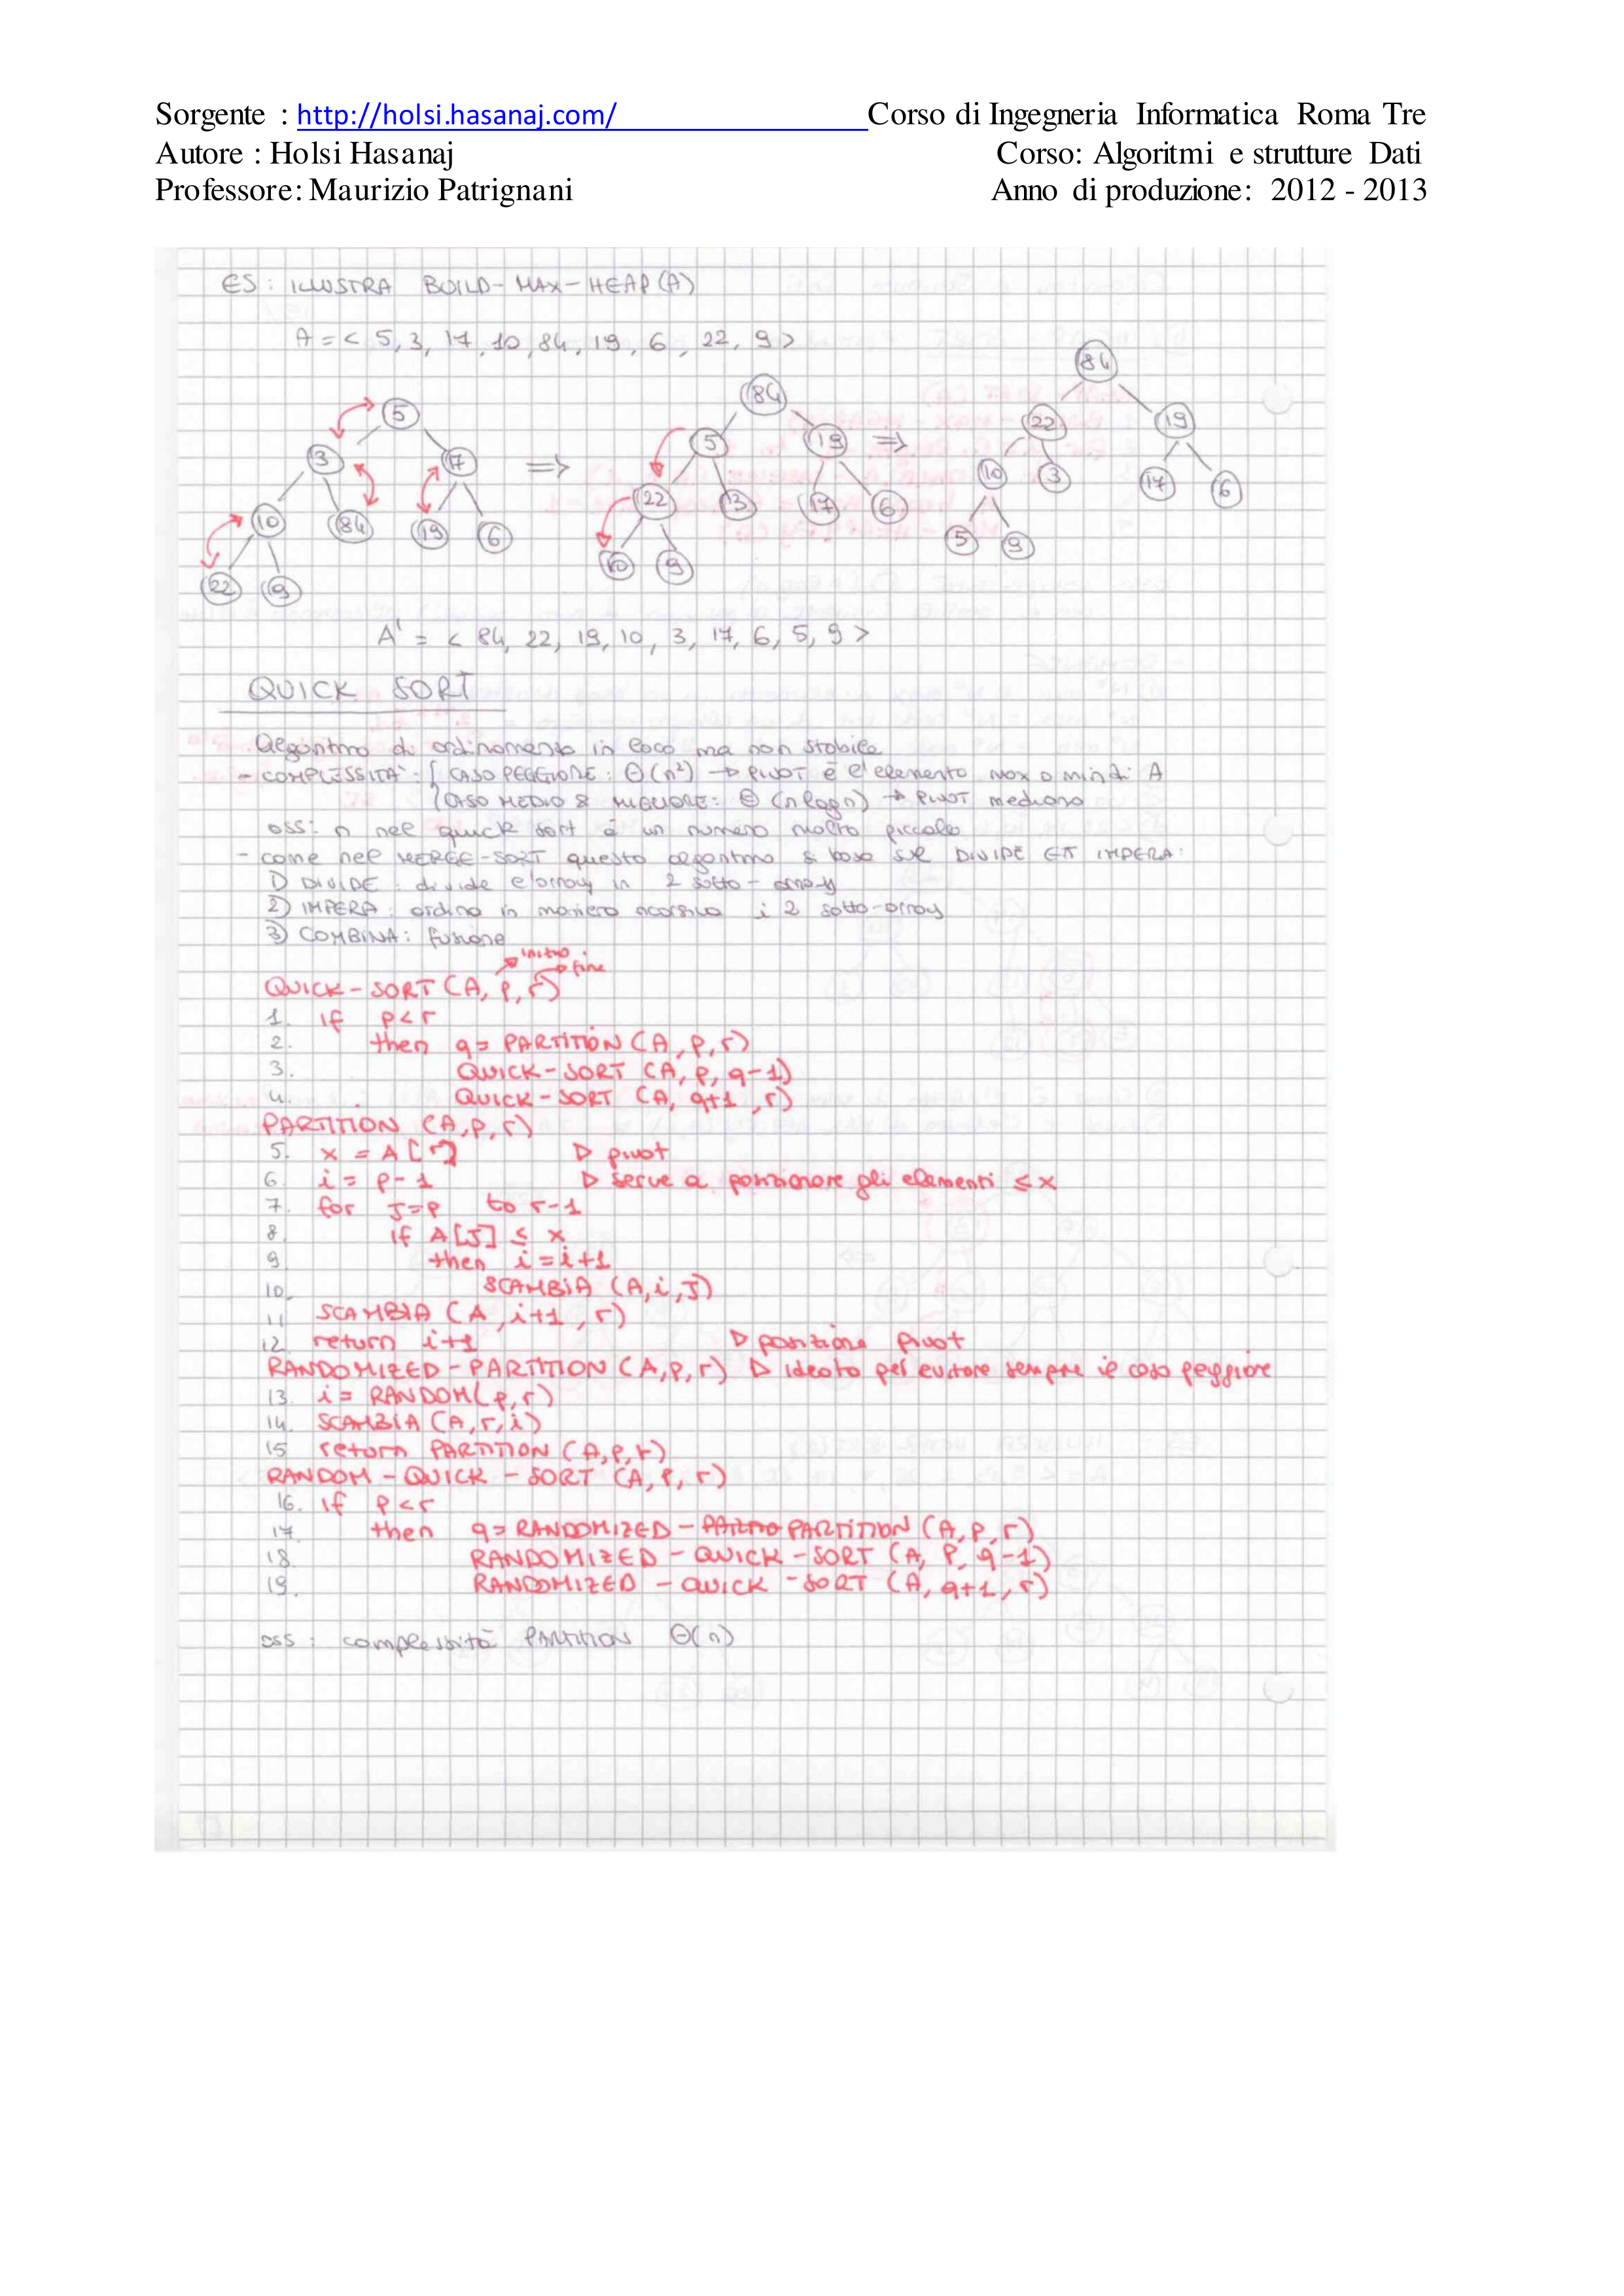 Sorgente : http://holsi.hasanaj.com/ Corso di Ingegneria Informatica Roma Tre
Autore : Holsi Hasanaj Corso: Algoritmi e strutture Dati
Professore: Maurizio Patrignani Anno di produzione: 2012 - 2013
ES: ILLUSTRA BUILD-MAX-HEAP(A)
A = < 5, 3, 17, 10, 84, 19, 6, 22, 9 >
5 3 17 10 84 19 6 22 9
⇒
84 5 19 22 3 17 6 10 9
⇒
84 22 19 10 3 17 6 5 9
A' = < 84, 22, 19, 10, 3, 17, 6, 5, 9 >
QUICK SORT
Algoritmo di ordinamento in loco ma non stabile
- COMPLESSITA': { CASO PEGGIORE: Θ(n²) → PIVOT è l'elemento max o min di A
{ CASO MEDIO & MIGLIORE: Θ(n log n) → PIVOT mediano
oss: n nel quick sort è un numero molto piccolo
- come nel MERGE-SORT questo algoritmo si basa sul DIVIDE ET IMPERA:
1) DIVIDE: divide l'array in 2 sotto-array
2) IMPERA: ordino in maniera ricorsiva i 2 sotto-array
3) COMBINA: fusione
→ inizio
→ fine
QUICK-SORT (A, p, r)
1. if p<r
2. then q = PARTITION (A, p, r)
3. QUICK-SORT (A, p, q-1)
4. QUICK-SORT (A, q+1, r)
PARTITION (A, p, r)
5. x = A[r] ▷ pivot
6. i = p-1 ▷ serve a posizionare gli elementi ≤ x
7. for J=p to r-1
8. if A[J] ≤ x
9. then i = i+1
10. SCAMBIA (A, i, J)
11. SCAMBIA (A, i+1, r)
12. return i+1 ▷ posizione pivot
RANDOMIZED-PARTITION (A, p, r) ▷ ideato per evitare sempre il caso peggiore
13. i = RANDOM(p, r)
14. SCAMBIA (A, r, i)
15. return PARTITION (A, p, r)
RANDOM-QUICK-SORT (A, p, r)
16. if p<r
17. then q = RANDOMIZED-PARTITION (A, p, r)
18. RANDOMIZED-QUICK-SORT (A, p, q-1)
19. RANDOMIZED-QUICK-SORT (A, q+1, r)
oss: complessità PARTITION Θ(n)